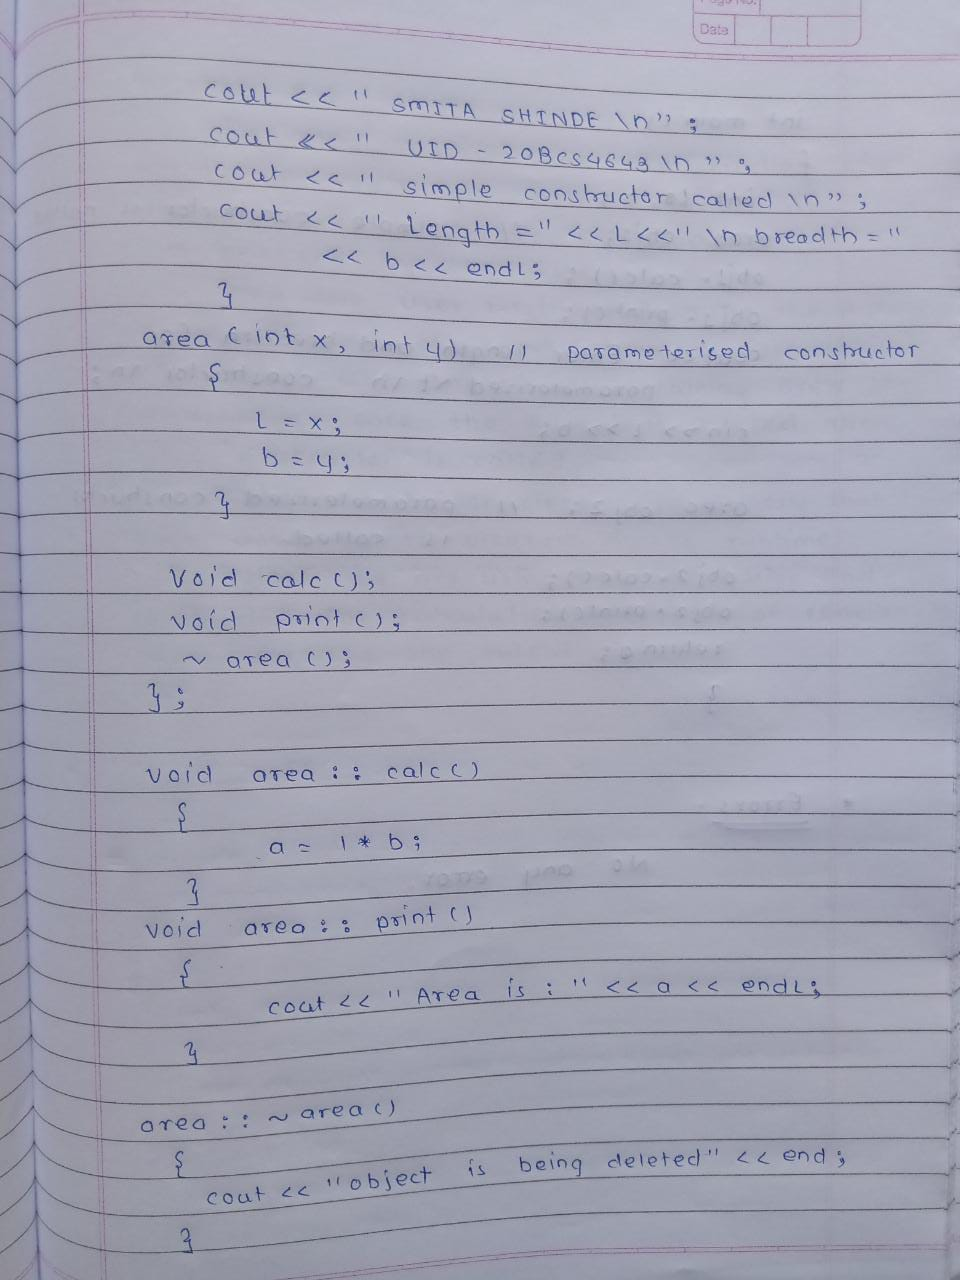 Page No.
Date
cout << " SMITA SHINDE \n" ;
cout << " UID - 20BCS4643 \n " ;
cout << " simple constructor called \n" ;
cout << " Length =" << L << " \n breadth = "
<< b << endl;
}
area ( int x, int y) // parameterised constructor
{
l = x;
b = y;
}
void calc ();
void print ();
~ area ();
} ;
void area : : calc ()
{
a = l * b ;
}
void area : : print ()
{
cout << " Area is : " << a << endl;
}
area : : ~ area ()
{
cout << "object is being deleted" << end ;
}